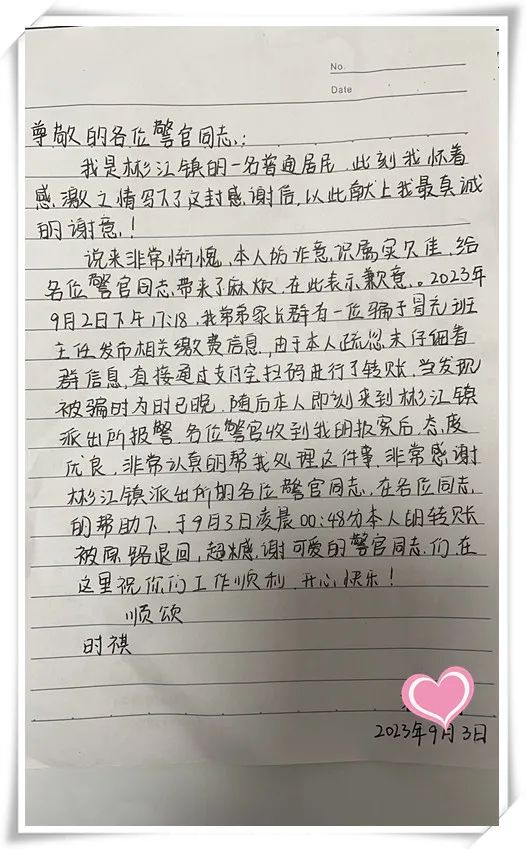 No.
Date
尊敬的各位警官同志:
我是彬江镇的一名普通居民.此刻我怀着
感激之情写下了这封感谢后,以此献上我最真诚
的谢意!
说来非常惭愧,本人的诈意识属实欠佳,给
各位警官同志带来了麻烦.在此表示歉意。2023年
9月2日下午17:18,我弟弟家长群有一位骗子冒充班
主任发布相关缴费信息,由于本人疏忽未仔细看
群信息,直接通过支付宝扫码进行了转账.当发现
被骗时为时已晚.随后本人即刻来到彬江镇
派出所报警.各位警官收到我的报案后,态度
优良,非常认真的帮我处理这件事.非常感谢
彬江镇派出所的各位警官同志,在各位同志
的帮助下.于9月3日凌晨00:48分本人的转账
被原路退回,超感谢可爱的警官同志们.在
这里祝你们工作顺利.开心快乐!
顺颂
时祺
2023年9月3日